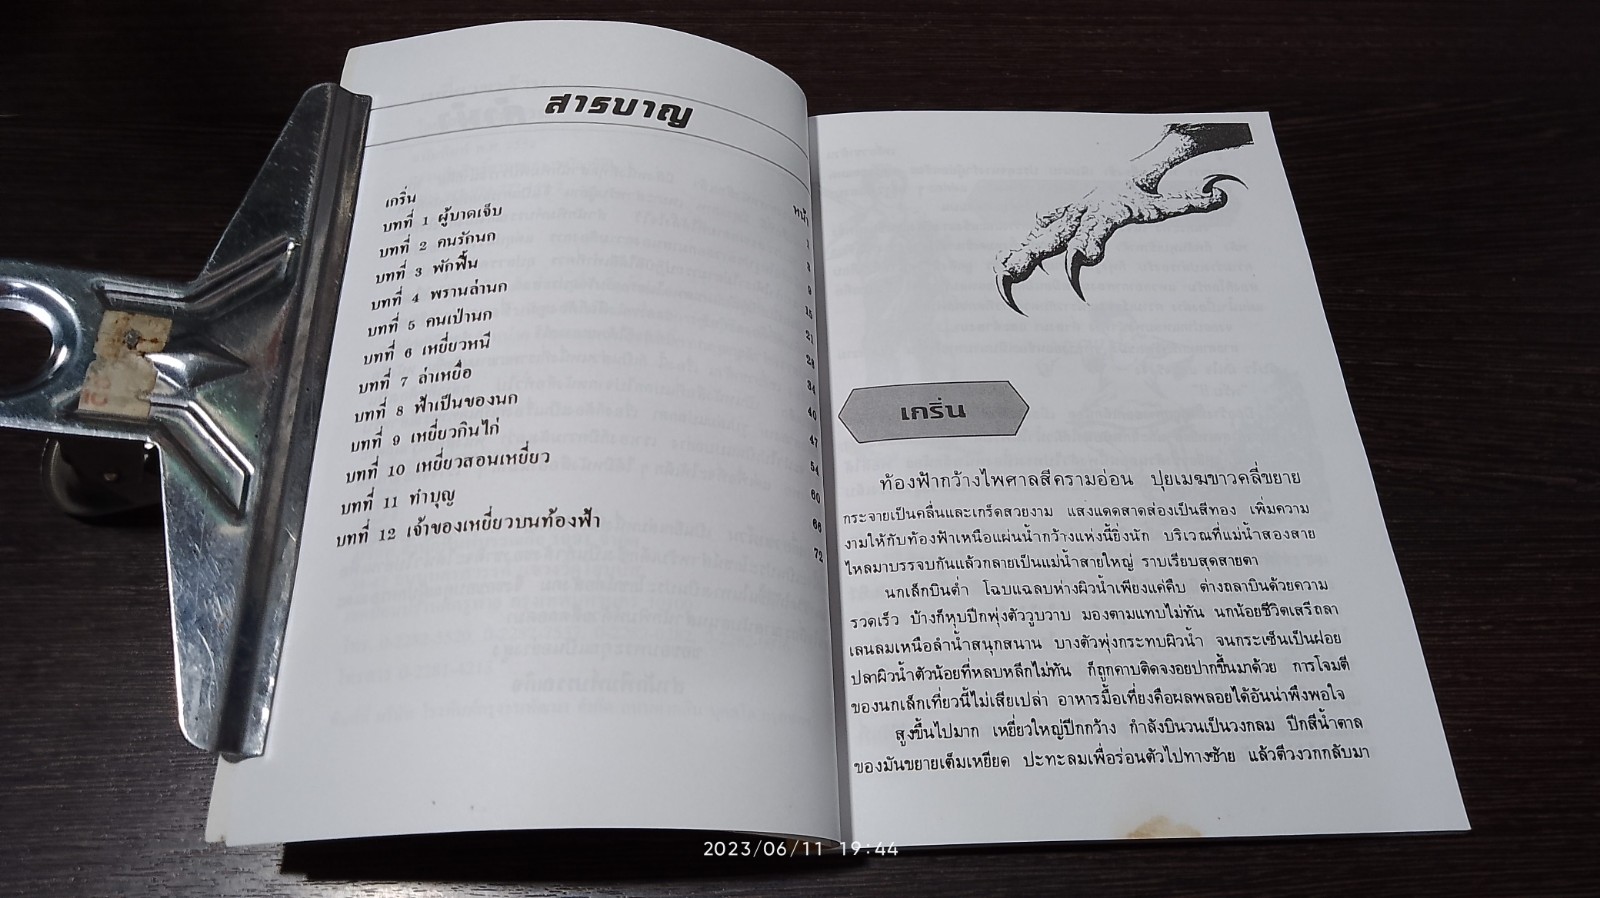 สารบาญ
หน้า
เกริ่น 1
บทที่ 1 ผู้บาดเจ็บ 3
บทที่ 2 คนรักนก 9
บทที่ 3 พักฟื้น 15
บทที่ 4 พรานล่านก 21
บทที่ 5 คนเป่านก 28
บทที่ 6 เหยี่ยวหนี 34
บทที่ 7 ล่าเหยื่อ 40
บทที่ 8 ฟ้าเป็นของนก 47
บทที่ 9 เหยี่ยวกินไก่ 54
บทที่ 10 เหยี่ยวสอนเหยี่ยว 60
บทที่ 11 ทำบุญ 66
บทที่ 12 เจ้าของเหยี่ยวบนท้องฟ้า 72
เกริ่น
ท้องฟ้ากว้างไพศาลสีครามอ่อน ปุยเมฆขาวคลี่ขยาย
กระจายเป็นคลื่นและเกร็ดสวยงาม แสงแดดสาดส่องเป็นสีทอง เพิ่มความ
งามให้กับท้องฟ้าเหนือแผ่นน้ำกว้างแห่งนี้ยิ่งนัก บริเวณที่แม่น้ำสองสาย
ไหลมาบรรจบกันแล้วกลายเป็นแม่น้ำสายใหญ่ ราบเรียบสุดสายตา
นกเล็กบินต่ำ โฉบแฉลบห่างผิวน้ำเพียงแค่คืบ ต่างถลาบินด้วยความ
รวดเร็ว บ้างก็หุบปีกพุ่งตัววูบวาบ มองตามแทบไม่ทัน นกน้อยชีวิตเสรีถลา
เล่นลมเหนือลำน้ำสนุกสนาน บางตัวพุ่งกระทบผิวน้ำ จนกระเซ็นเป็นฝอย
ปลาผิวน้ำตัวน้อยที่หลบหลีกไม่ทัน ก็ถูกคาบติดจงอยปากขึ้นมาด้วย การโจมตี
ของนกเล็กเที่ยวนี้ไม่เสียเปล่า อาหารมื้อเที่ยงคือผลพลอยได้อันน่าพึงพอใจ
สูงขึ้นไปมาก เหยี่ยวใหญ่ปีกกว้าง กำลังบินวนเป็นวงกลม ปีกสีน้ำตาล
ของมันขยายเต็มเหยียด ปะทะลมเพื่อร่อนตัวไปทางซ้าย แล้วตีวงวกกลับมา
2023/06/11 19:44